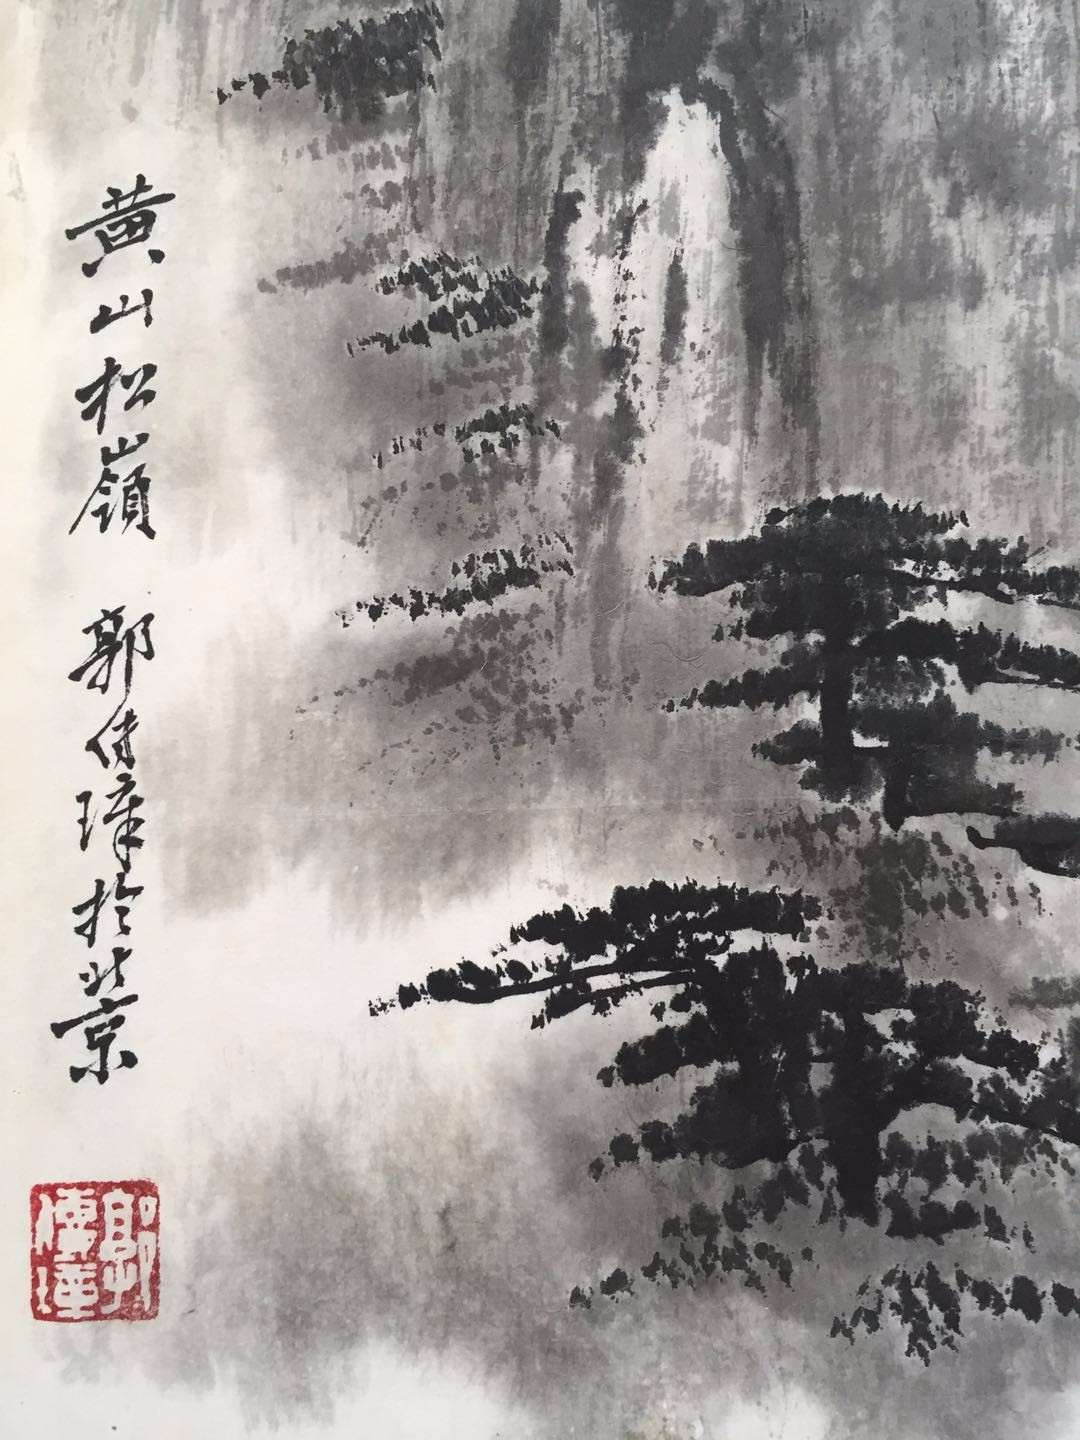 黄山松嶺 郭传璋於北京
郭傳璋